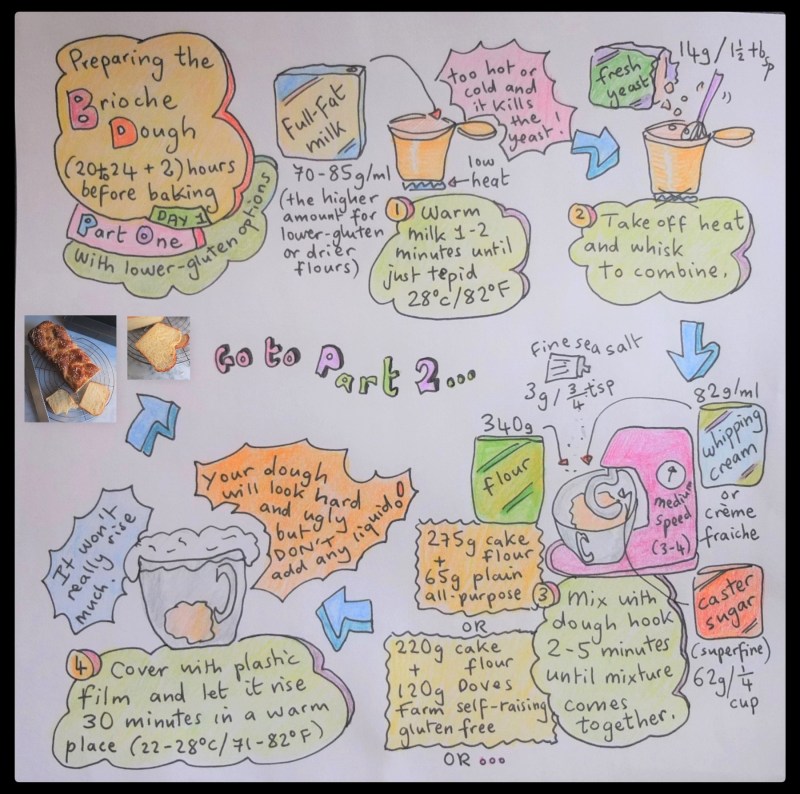 Preparing the
Brioche
Dough
(20 to 24 + 2) hours
before baking
DAY 1
Part One
With lower-gluten options
Full-Fat
milk
70-85g/ml
(the higher
amount for
lower-gluten
or drier
flours)
too hot or
cold and
it kills
the
yeast!
low
heat
1 Warm
milk 1-2
minutes until
just tepid
28°C/82°F
fresh
yeast
14g/1½ tbsp
2 Take off heat
and whisk
to combine.
Fine sea salt
3g/¾ tsp
82g/ml
whipping
cream
or
crème
fraiche
340g
flour
medium
speed
(3-4)
275g cake
flour
+
65g plain
all-purpose
OR
220g cake
flour
+
120g Doves
Farm self-raising
gluten free
OR ...
caster
sugar
(superfine)
62g/¼
cup
3 Mix with
dough hook
2-5 minutes
until mixture
comes
together.
Your dough
will look hard
and ugly
but
DON'T
add any liquid!
It won't
really rise
much.
4 Cover with plastic
film and let it rise
30 minutes in a warm
place (22-28°C/71-82°F)
Go to Part 2...